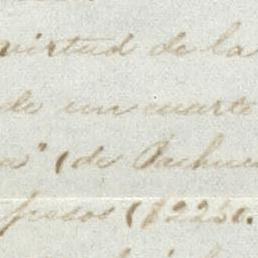 virtud de la
de un cuarto
a" (de Pachuca
pesos ($2250.